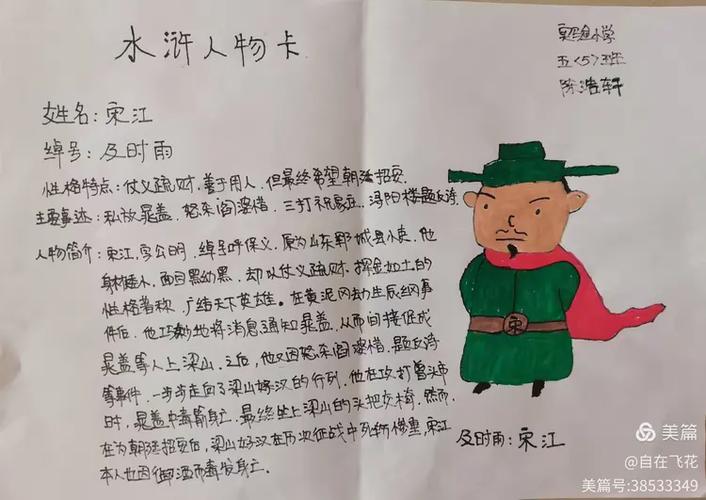 水浒人物卡
实验小学
五<5>班
陈浩轩
姓名：宋江
绰号：及时雨
性格特点：仗义疏财，善于用人，但最终希望朝廷招安.
主要事迹：私放晁盖，怒杀阎婆惜，三打祝家庄，浔阳楼题反诗
人物简介：宋江，字公明，绰号呼保义，原为山东郓城县小吏，他
身材矮小，面目黑幼黑，却以仗义疏财、挥金如土的
性格著称，广结天下英雄。在黄泥冈劫生辰纲事
件后，他巧妙地将消息通知晁盖，从而间接促成
晁盖等人上梁山，之后，他又因怒杀阎婆惜、题反诗
等事件，一步步走向了梁山好汉的行列，他在攻打曾头市
时，晁盖中毒箭身亡，最终坐上梁山的头把交椅，然而，
在为朝廷招安后，梁山好汉在历次征战中死伤惨重，宋江
本人也因御酒而毒发身亡。
宋
及时雨：宋江
美篇
@自在飞花
美篇号:38533349